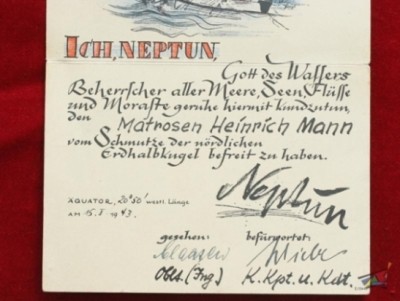 ICH, NEPTUN,
Gott des Wassers
Beherrscher aller Meere, Seen, Flüsse
und Moraste geruhe hiermit kundzutun,
den Matrosen Heinrich Mann
vom Schmutze der nördlichen
Erdhalbkugel befreit zu haben.
Neptun
ÄQUATOR, 20°50' westl. Länge
AM 15. 1943.
gesehen: befürwortet:
Oblt. (Ing.) K.Kpt. u. Kdt.